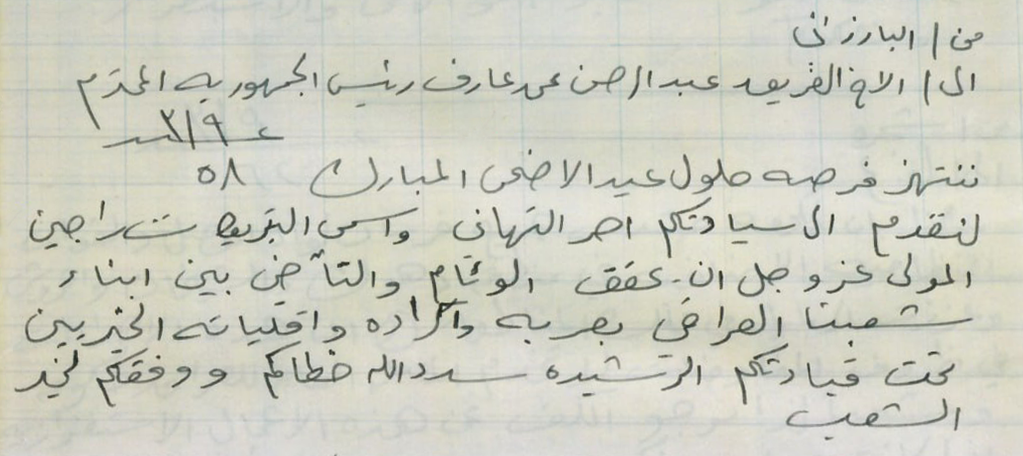 من / البارزاني
الى / الاخ الفريق عبد الرحمن محمد عارف رئيس الجمهوريه المحترم
ع ٣١٩
ننتهز فرصه حلول عيد الاضحى المبارك ٥٨
لنقدم الى سيادتكم احر التهاني واسمى التبريكات راجين
المولى عز وجل ان يحقق الوئام والتآخي بين ابناء
شعبنا العراقي بعربه واكراده واقلياته الخيريين
تحت قيادتكم الرشيده سدد الله خطاكم ووفقكم لخير
الشعب